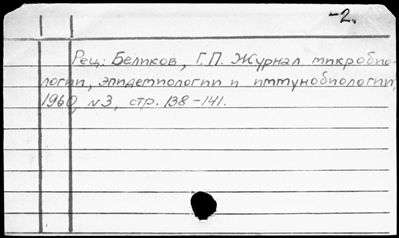 -2.
Рец: Беликов, Г.П. Журнал микробио-
логии, эпидемиологии и иммунобиологии,
1960, №3, стр. 138-141.